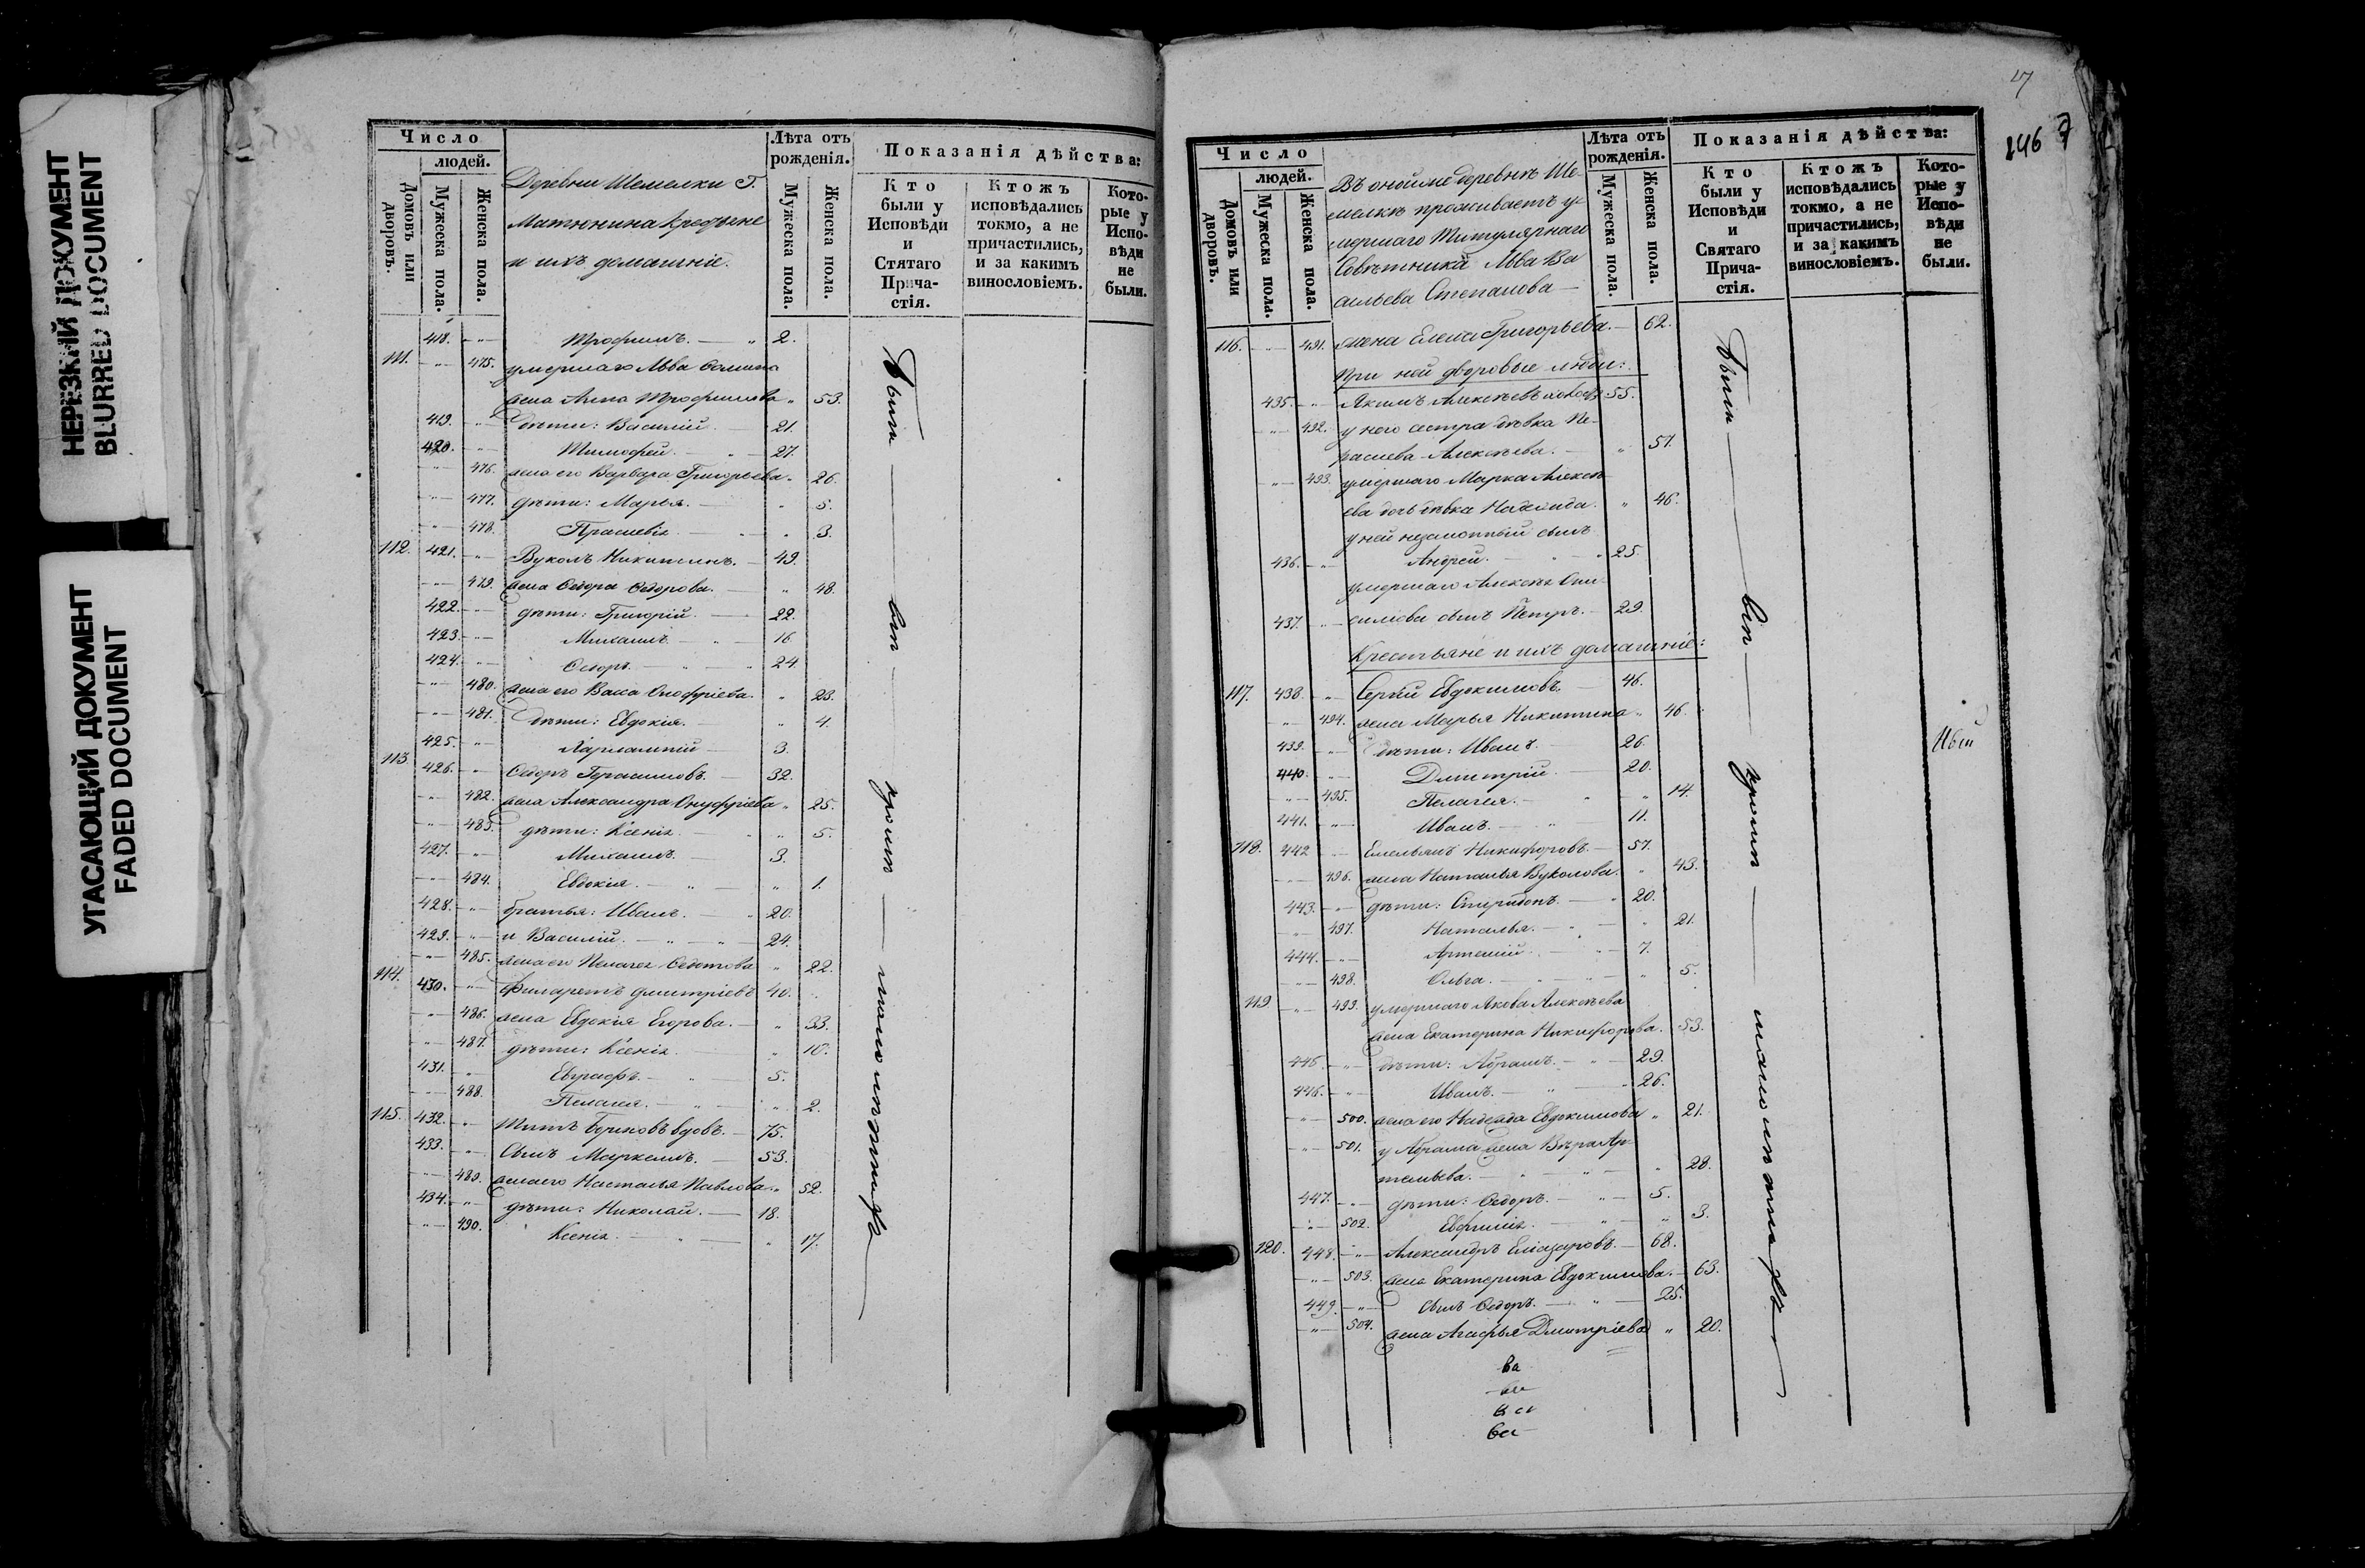 НЕРЕЗКИЙ ДОКУМЕНТ
BLURRED DOCUMENT
УГАСАЮЩИЙ ДОКУМЕНТ
FADED DOCUMENT
Число
людей.
Домовъ или дворовъ.
Мужеска пола.
Женска пола.
Деревни Шемелки Г.
Матюнина крестьяне
и ихъ домашніе.
Лѣта отъ рожденія.
Мужеска пола.
Женска пола.
Показанія дѣйства:
Кто были у Исповѣди и Стятаго Прича-стія.
Ктожъ исповѣдались токмо, а не причастились, и за какимъ винословіемъ.
Кото-рые у Испо-вѣди не были.
418. Трофимъ. 2.
111. 475. умершаго Льва Фомина
жена Анна Трофимова 53.
419. дѣти: Василій. 21.
420. Тимофей. 27.
476. жена его Варвара Григорьева. 26.
477. дѣти: Марья. 5.
478. Праскевія 3.
112. 421. Вуколъ Никитинъ. 49.
479. жена Ѳедора Ѳедорова. 48.
422. дѣти: Григорій. 22.
423. Михаилъ. 16
424. Ѳедоръ. 24
480. жена его Васса Онофріева. 23.
481. дѣти: Евдокія. 4.
425. Харлампій 3.
113. 426. Ѳедоръ Герасимовъ. 32.
482. жена Александра Онуфріева 25.
483. дѣти: Ксенія. 5.
427. Михаилъ. 3.
484. Евдокія. 1.
428. братья: Иванъ. 20.
429. и Василій. 24.
485. жена его Пелагея Ѳедотова 22.
114. 430. Филаретъ Дмитріевъ 40.
486. жена Евдокія Егорова. 33.
487. дѣти: Ксенія. 10.
431. Евграфъ. 5.
488. Пелагея. 2.
115. 432. Титъ вдовъ. 75.
433. Сынъ Маркелъ. 53.
489. жена его Настасья Павлова. 52.
434. дѣти: Николай. 18.
490. Ксенія. 17.
Были
246
Число
людей.
Домовъ или дворовъ.
Мужеска пола.
Женска пола.
Въ онойже деревнѣ Ше-
мелкѣ проживаетъ у-
мершаго Титулярнаго
Совѣтника Льва Ва
сильева Степанова
Лѣта отъ рожденія.
Мужеска пола.
Женска пола.
Показанія дѣйства:
Кто были у Исповѣди и Святаго Прича-стія.
Ктожъ исповѣдались токмо, а не причастились, и за какимъ винословіемъ.
Кото-рые у Испо-вѣди не были.
116. 491. жена Елена Григорьева. 62.
При ней дворовые люди:
435. Якимъ Алексѣевъ 55.
492. у него сестра дѣвка Па-
раскева Алексѣева. 51.
493. умершаго Марка Алексѣ
ева дочь дѣвка Надежда. 46.
у ней незаконный сынъ
436. Андрей. 25.
умершаго Алексѣя Они-
437. симова сынъ Петръ. 29.
Крестьяне и ихъ домашніе:
117. 438. Сергѣй Евдокимовъ. 46.
494. жена Марья Никитина 46.
439. дѣти: Иванъ. 26.
440. Дмитрій. 20.
495. Пелагея. 14.
441. Иванъ. 11.
118. 442 Емельянъ Никифоровъ. 57.
496. жена Наталья Вуколова. 43.
443. дѣти: Спиридонъ. 20.
497. Наталья. 21.
444. Артемій. 7.
498. Ольга. 5.
119 499. умершаго Якова Алексѣева
жена Екатерина Никифорова. 53.
445. дѣти: Абрамъ. 29.
446. Иванъ. 26.
500. жена его Надежда Евдокимова 21.
501. у Абрама жена Вѣра Ар-
темьева. 28.
447. дѣти: Ѳедоръ. 5.
502. Евфимія. 3.
120. 448. Александръ Елазаровъ. 68.
503. жена Екатерина Евдокимова. 63.
449. Сынъ Ѳедоръ. 25.
504. жена Агафья Дмитріева 20.
Были